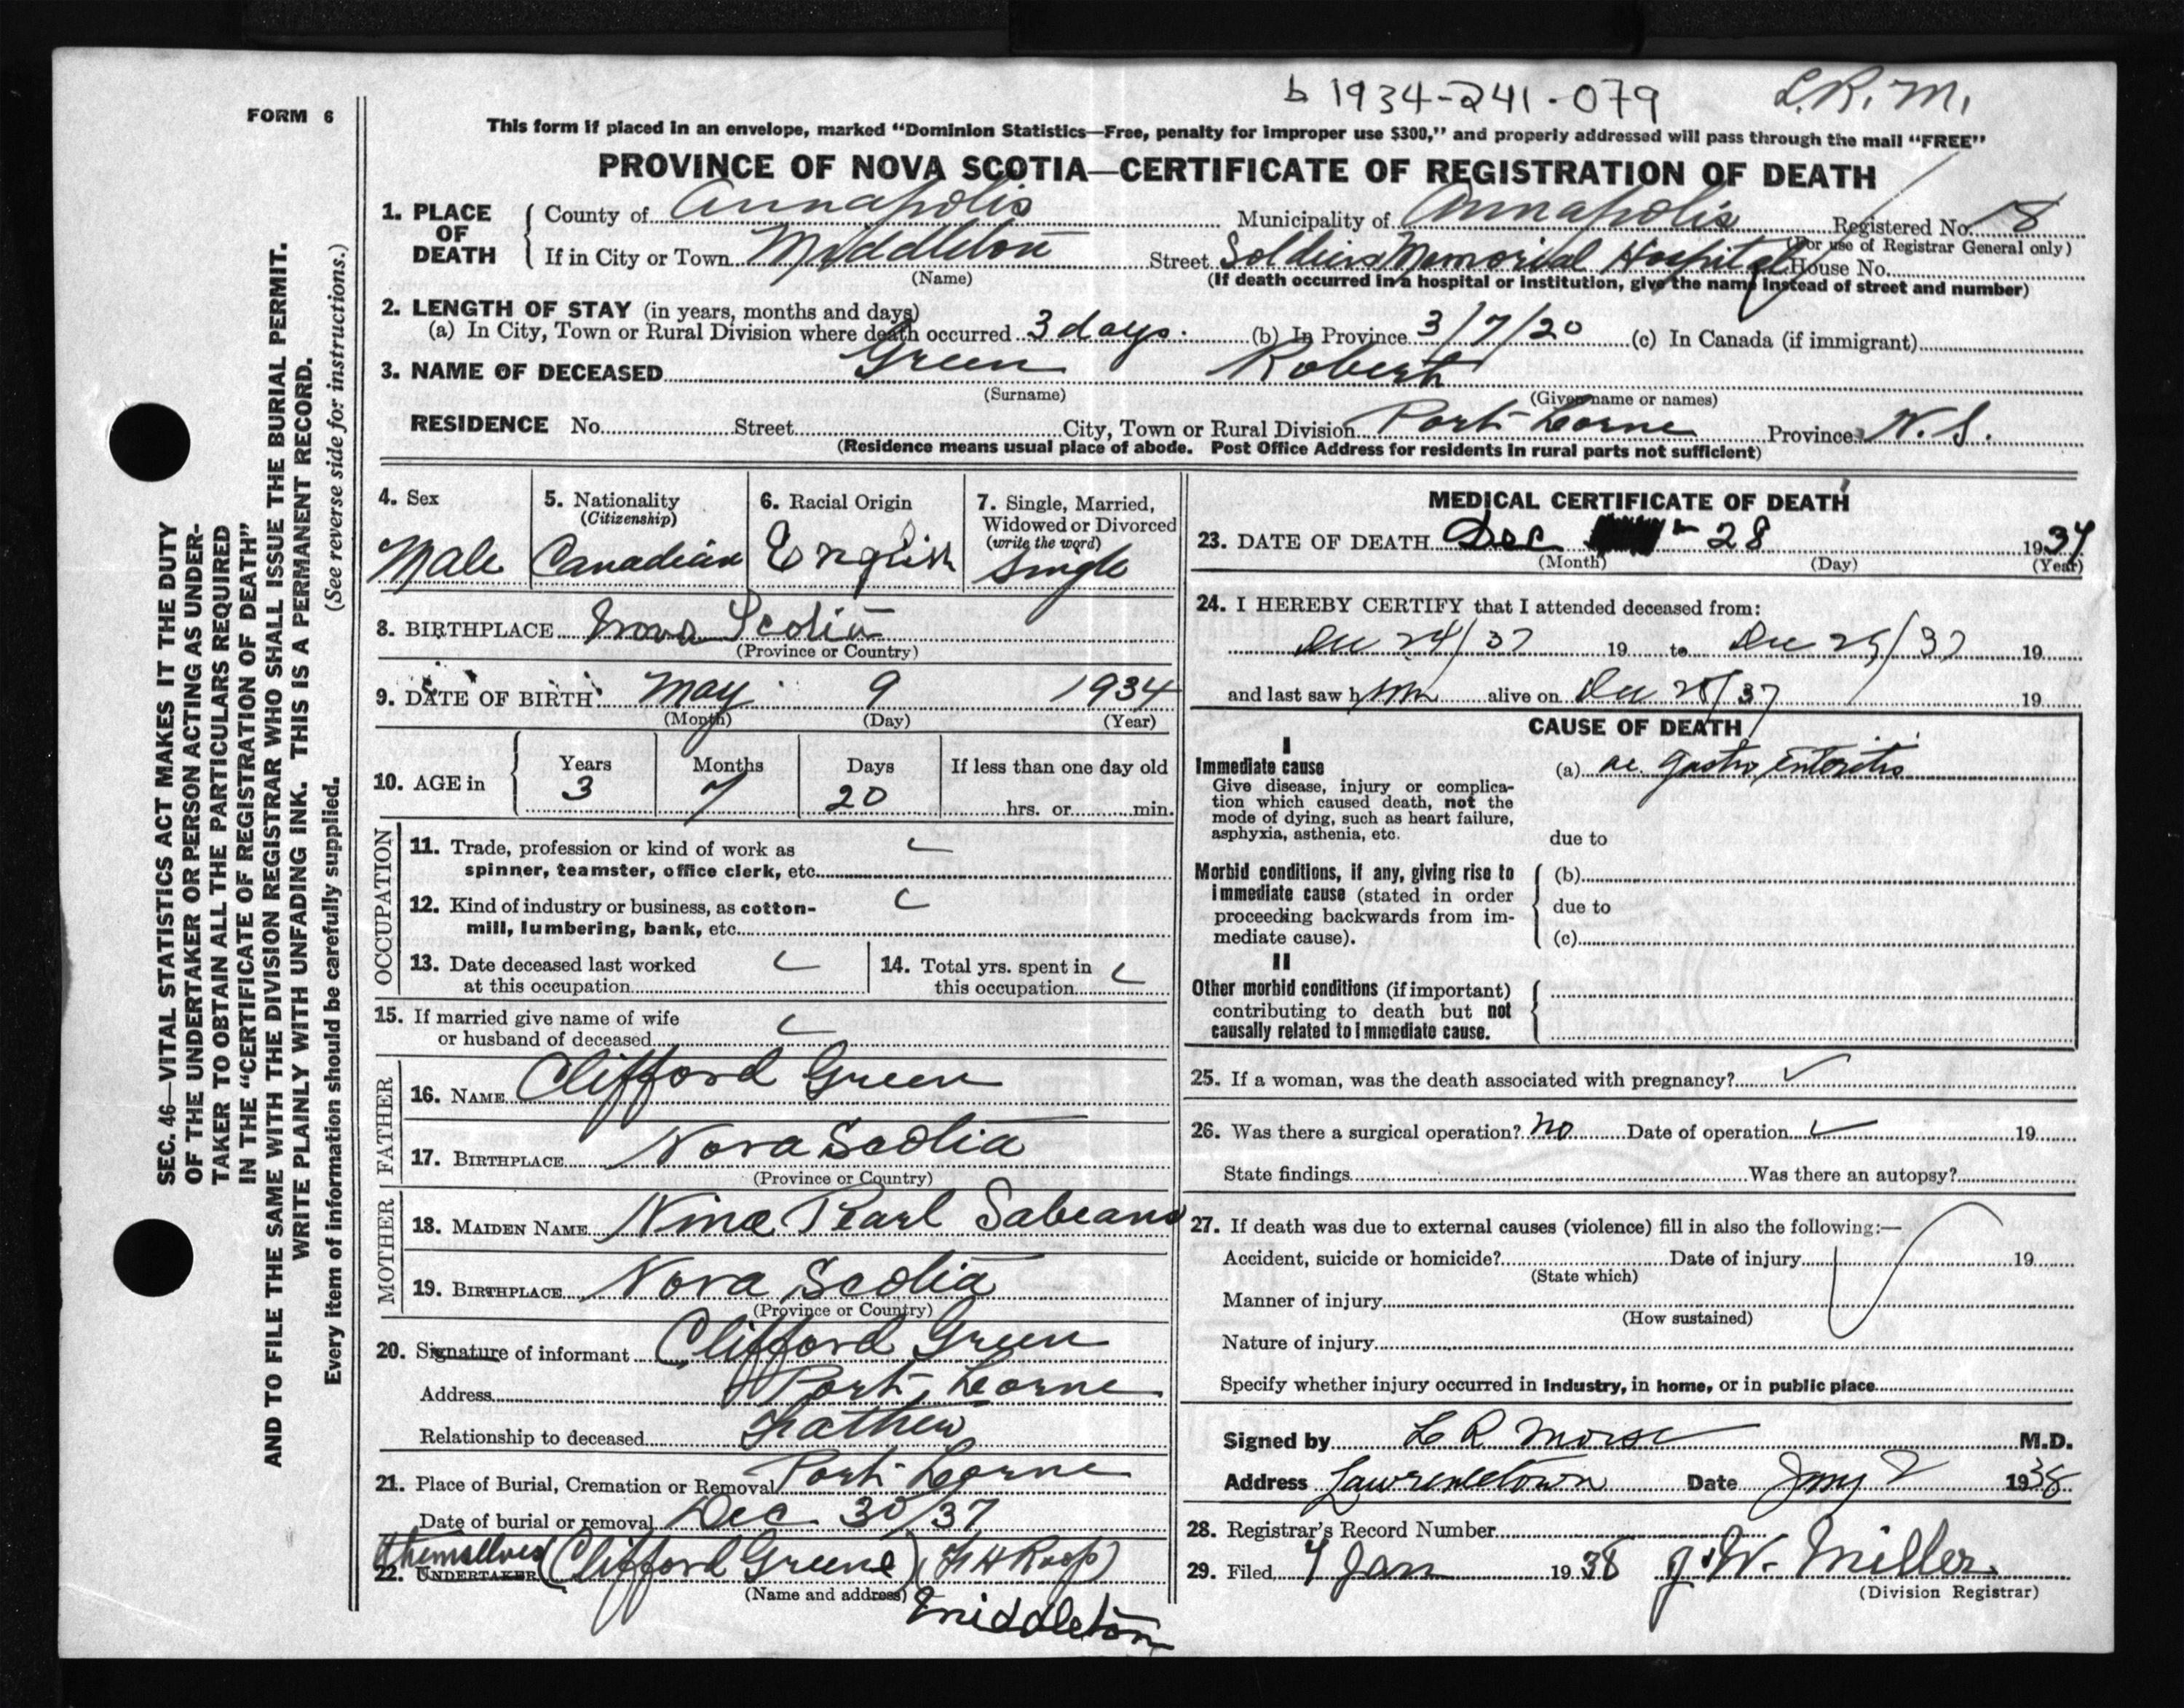 b 1934-241-079 L.R.M.
FORM 6
This form if placed in an envelope, marked “Dominion Statistics—Free, penalty for improper use $300,” and properly addressed will pass through the mail “FREE”
PROVINCE OF NOVA SCOTIA—CERTIFICATE OF REGISTRATION OF DEATH
1. PLACE OF DEATH County of Annapolis Municipality of Annapolis Registered No. 18
(For use of Registrar General only)
If in City or Town Middleton Street Soldiers Memorial Hospital House No.
(Name) (If death occurred in a hospital or institution, give the name instead of street and number)
2. LENGTH OF STAY (in years, months and days)
(a) In City, Town or Rural Division where death occurred 3 days. (b) In Province 3/7/20 (c) In Canada (if immigrant)
3. NAME OF DECEASED Green Robert
(Surname) (Given name or names)
RESIDENCE No. Street City, Town or Rural Division Port Lorne Province N.S.
(Residence means usual place of abode. Post Office Address for residents in rural parts not sufficient)
SEC. 46—VITAL STATISTICS ACT MAKES IT THE DUTY
OF THE UNDERTAKER OR PERSON ACTING AS UNDER-
TAKER TO OBTAIN ALL THE PARTICULARS REQUIRED
IN THE “CERTIFICATE OF REGISTRATION OF DEATH”
AND TO FILE THE SAME WITH THE DIVISION REGISTRAR WHO SHALL ISSUE THE BURIAL PERMIT.
WRITE PLAINLY WITH UNFADING INK. THIS IS A PERMANENT RECORD.
Every item of information should be carefully supplied. (See reverse side for instructions.)
4. Sex
Male
5. Nationality
(Citizenship)
Canadian
6. Racial Origin
English
7. Single, Married,
Widowed or Divorced
(write the word)
Single
8. BIRTHPLACE Nova Scotia
(Province or Country)
9. DATE OF BIRTH May 9 1934
(Month) (Day) (Year)
10. AGE in Years Months Days If less than one day old
3 7 20 hrs. or min.
OCCUPATION
11. Trade, profession or kind of work as
spinner, teamster, office clerk, etc.
12. Kind of industry or business, as cotton-
mill, lumbering, bank, etc.
13. Date deceased last worked
at this occupation
14. Total yrs. spent in
this occupation
15. If married give name of wife
or husband of deceased
FATHER
16. NAME Clifford Green
17. BIRTHPLACE Nova Scotia
(Province or Country)
MOTHER
18. MAIDEN NAME Nina Pearl Sabeans
19. BIRTHPLACE Nova Scotia
(Province or Country)
20. Signature of informant Clifford Green
Address Port Lorne
Relationship to deceased Father
21. Place of Burial, Cremation or Removal Port Lorne
Date of burial or removal Dec 30/37
themselves
22. UNDERTAKER (Clifford Greene) (F H Roop)
(Name and address) Middleton
MEDICAL CERTIFICATE OF DEATH
23. DATE OF DEATH Dec - 28 1937
(Month) (Day) (Year)
24. I HEREBY CERTIFY that I attended deceased from:
Dec 24/37 19 to Dec 25/37 19
and last saw him alive on Dec 28/37 19
CAUSE OF DEATH
I
Immediate cause
Give disease, injury or complica-
tion which caused death, not the
mode of dying, such as heart failure,
asphyxia, asthenia, etc.
(a) ac. gastro enteritis
due to
Morbid conditions, if any, giving rise to
immediate cause (stated in order
proceeding backwards from im-
mediate cause).
(b)
due to
(c)
II
Other morbid conditions (if important)
contributing to death but not
causally related to immediate cause.
25. If a woman, was the death associated with pregnancy?
26. Was there a surgical operation? no Date of operation 19
State findings Was there an autopsy?
27. If death was due to external causes (violence) fill in also the following:—
Accident, suicide or homicide? Date of injury 19
(State which)
Manner of injury
(How sustained)
Nature of injury
Specify whether injury occurred in industry, in home, or in public place
Signed by L R Morse M.D.
Address Lawrencetown Date Jany 2 1938
28. Registrar’s Record Number
29. Filed 4 Jan 1938 J. W. Miller
(Division Registrar)